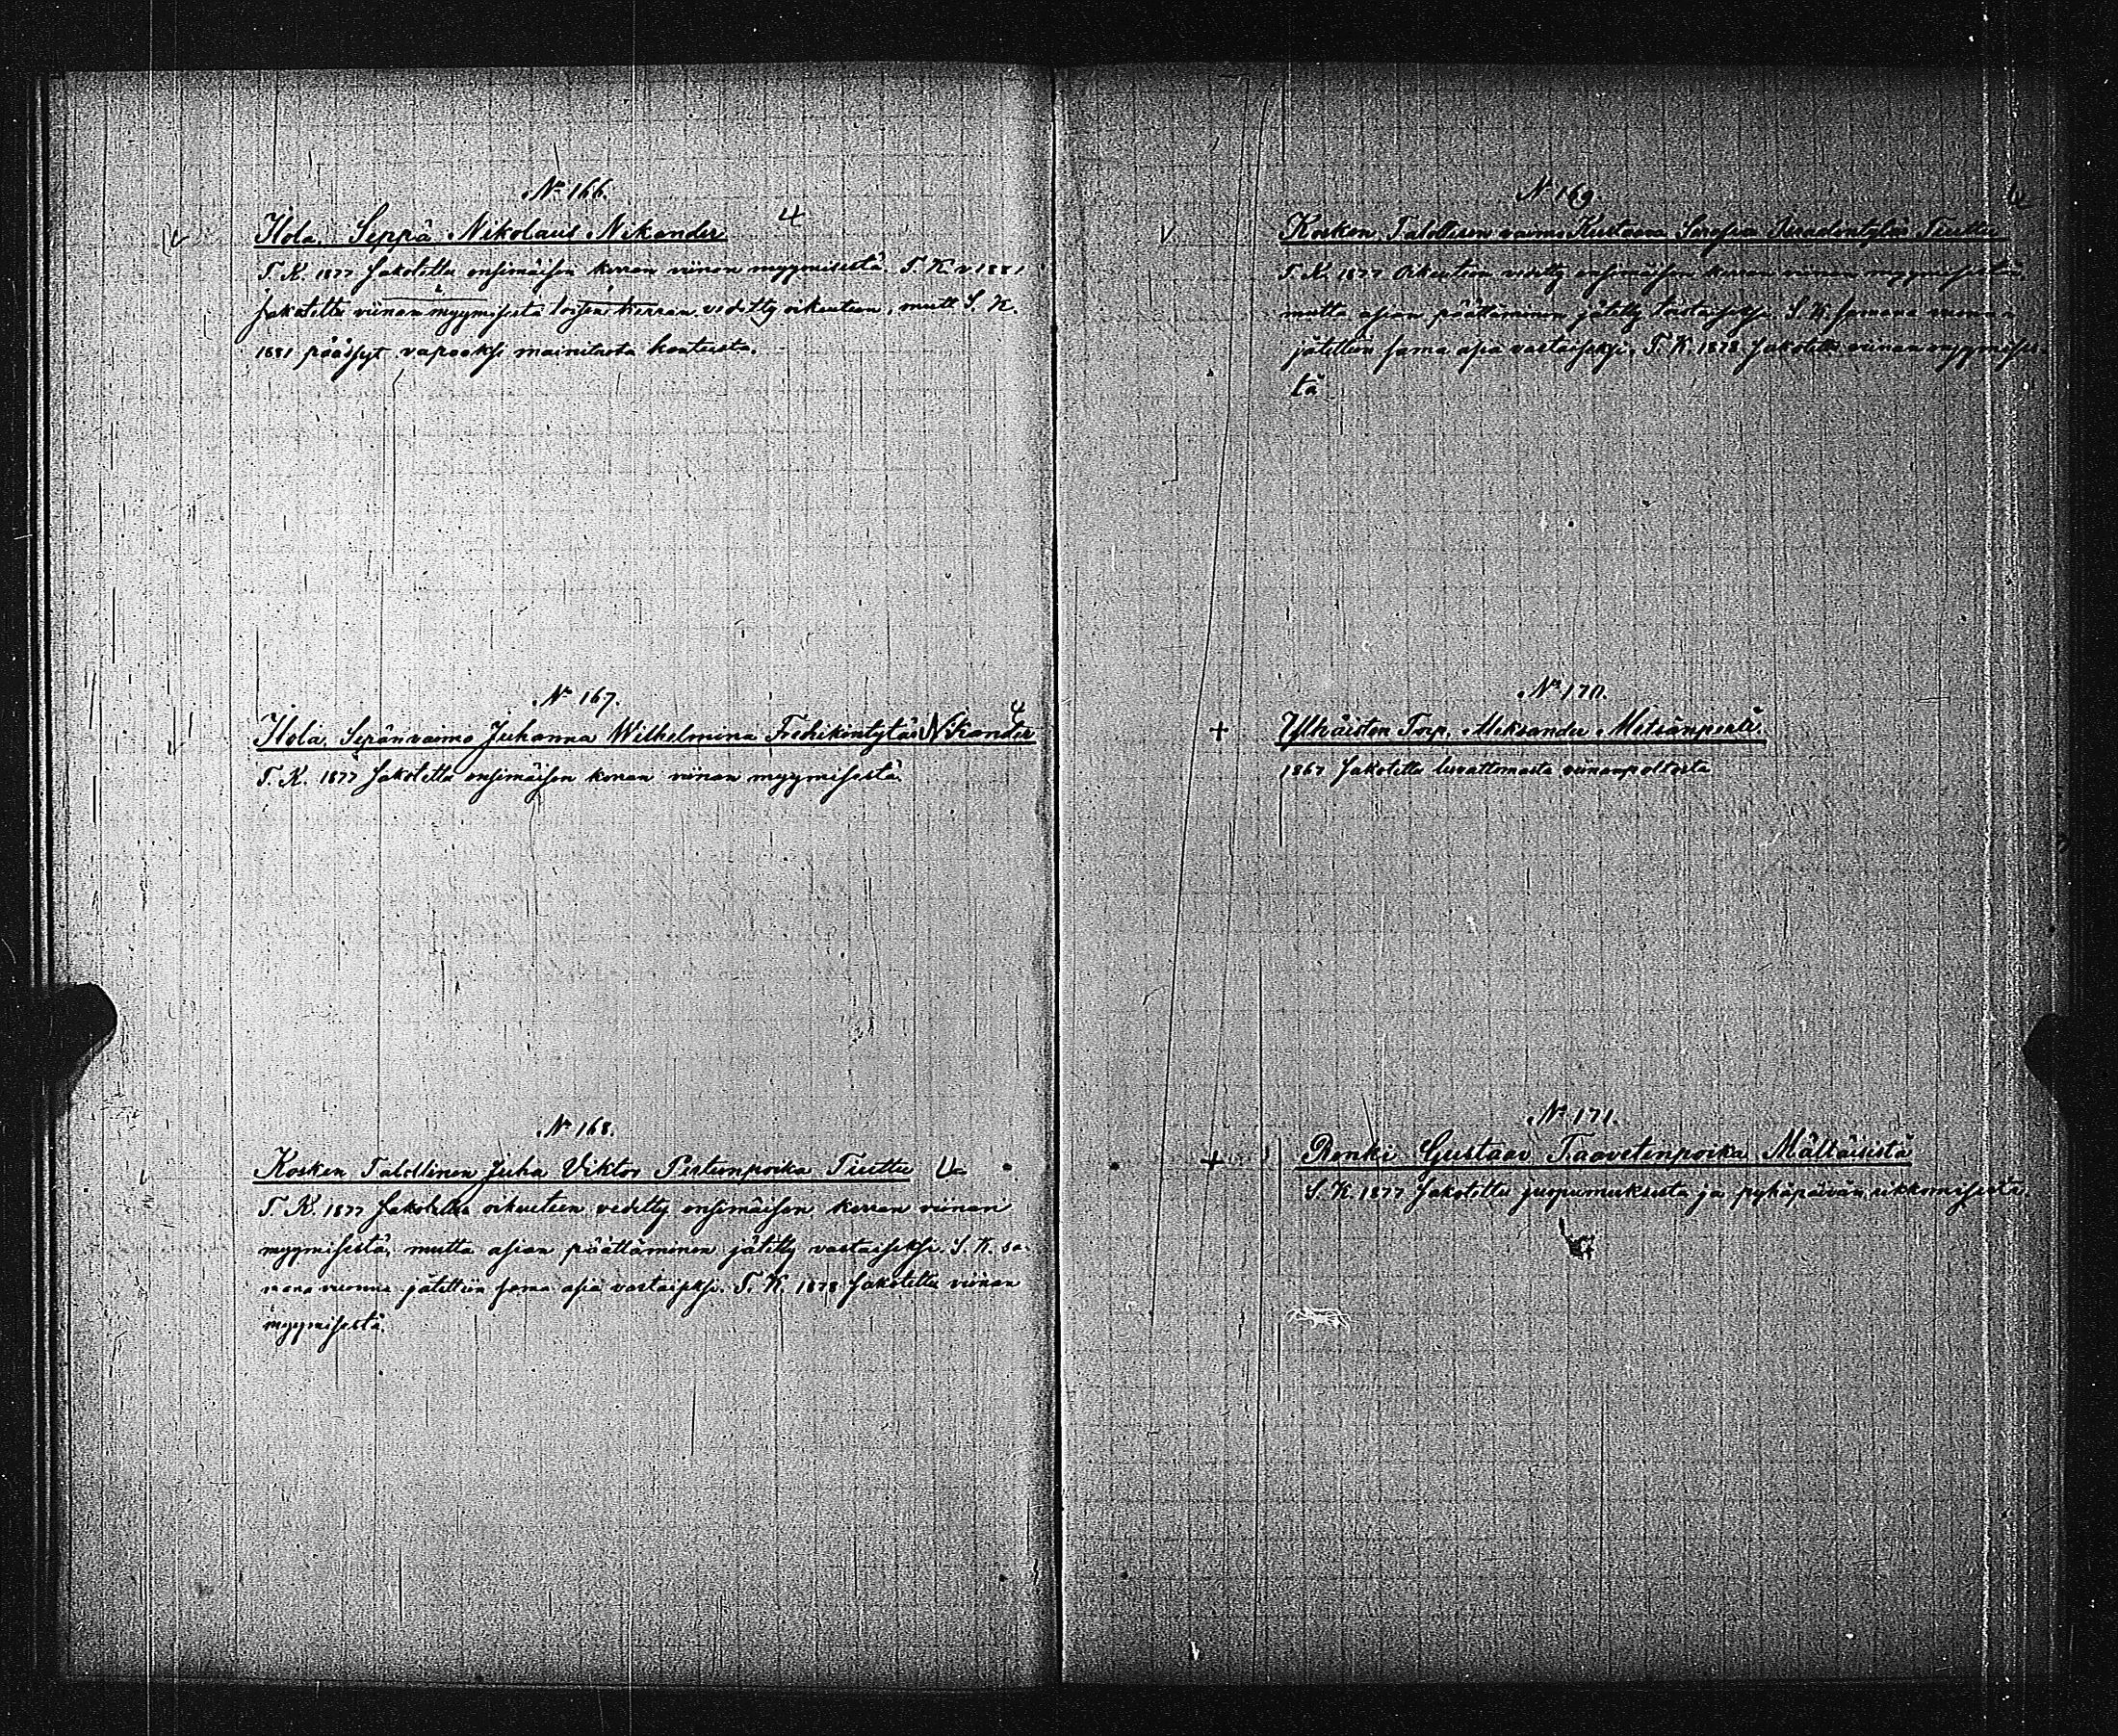 No 166.
4
Ilola. Seppä Nikolaus Nikander
T. K. 1877 sakotettu ensimäisen kerran viinan myymisestä. T. K. v 1881
sakotettu viinan myymisestä toisen kerran vedetty oikeuteen, mutt. S. K.
1881 päässyt vapaaksi mainitusta kanteesta.
No 167.
4
Ilola. Sepänvaimo Juhanna Wilhelmina Fredrikintytär Nikander
T. K. 1877 sakotettu ensimäisen kerran viinan myymisestä.
No 168.
Kosken Talollinen Juha Viktor Tuettu
T. K. 1877 oikeuteen vedetty ensimäisen kerran viinan
myymisestä, mutta asian päättäminen jätetty vastaiseksi. S. K. sa-
mana vuonna jätettiin sama asia vastaiseksi. T. K. 1878 sakotettu viinan
myymisestä.
No 169.
4
Kosken Talollisen vaimo Kustaava Tuettu
T. K. 1877 oikeuteen vedetty ensimäisen kerran viinan myymisestä,
mutta asian päättäminen jätetty toistaiseksi. S. K. samana vuonna
jätettiin sama asia vastaiseksi. T. K. 1878 sakotettu viinan myymises-
tä
No 170.
+ Ylhäisten Torp. Aleksander Metsänperä.
1867 sakotettu luvattomasta viinanpoltosta
No 171.
+ Renki Gustaav Taavetinpoika Mältäisistä
S. K. 1877 sakotettu juopumuksesta ja pyhäpäivän rikkomisesta.